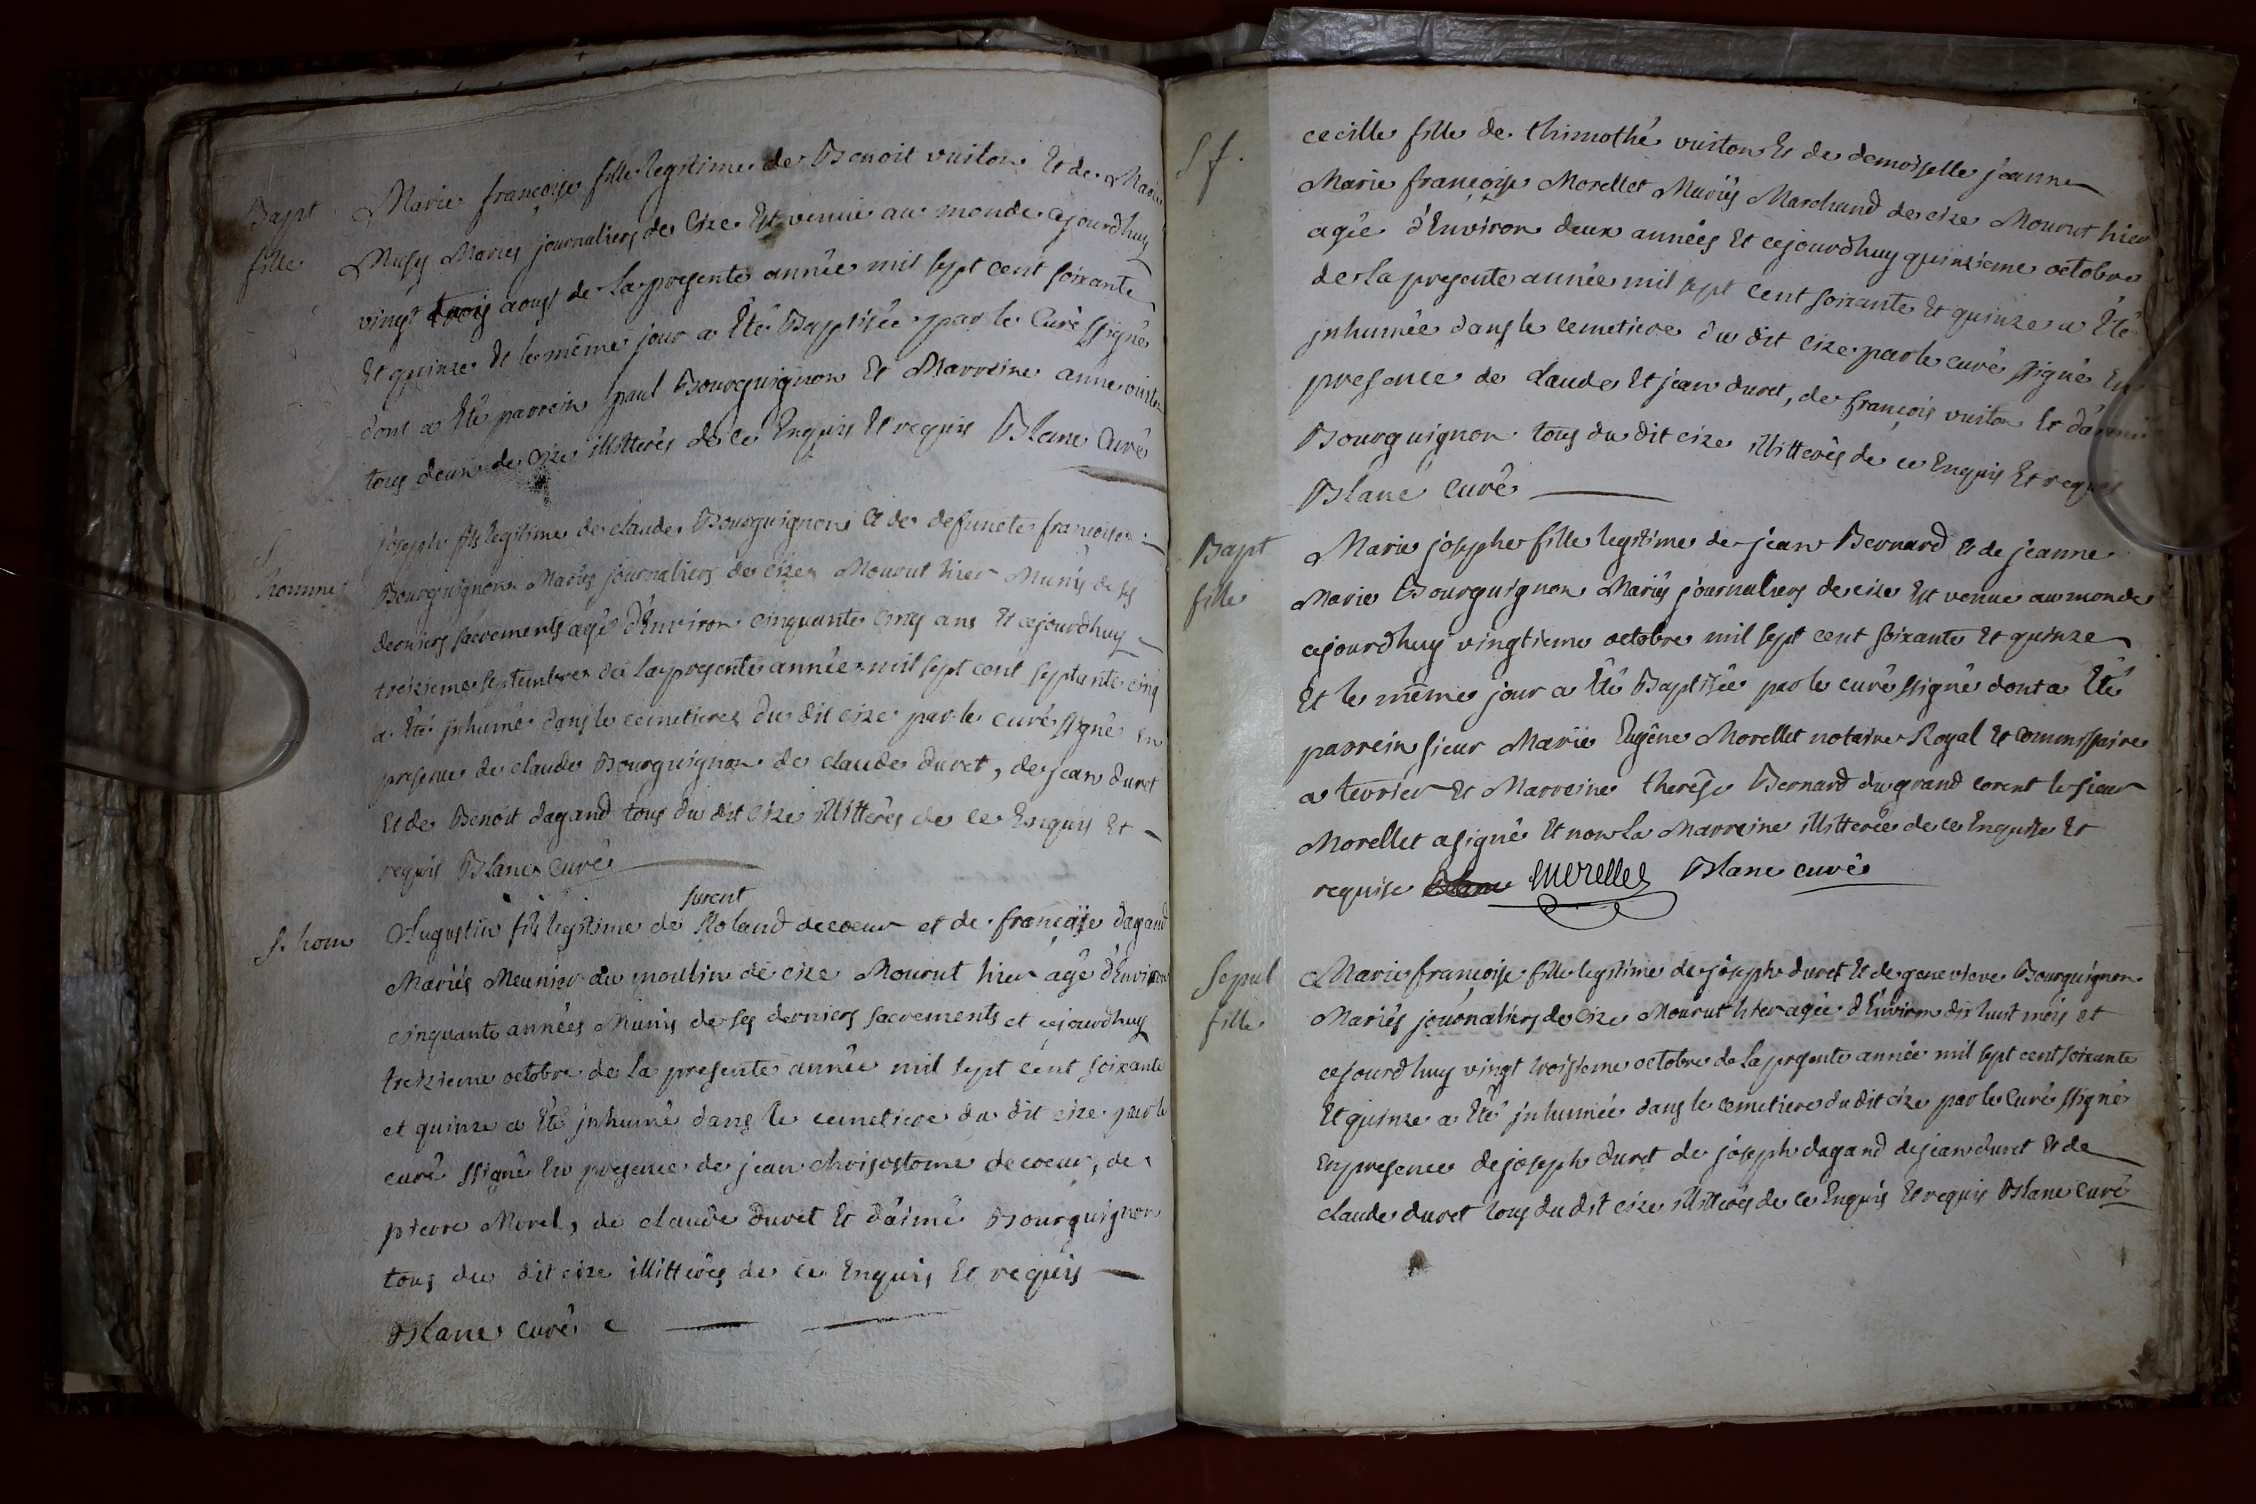 Bapt
fille
Marie françoise fille legitime de Benoit vuiton Et de Marie
Musy Mariés journaliers de Cize Est venuë au monde cejourdhuy
vingt trois aoust de La presente année mil sept cent soixante
Et quinze Et le même jour a Eté Baptisée par le Curé ssigné
dont a Eté parrein paul Bourguignon Et Marreine anne vuiton
tous deux de Cize illitterés de ce Enquis Et requis Blanc Curé
S
homme
joseph fils legitime de claude Bourguignon Et de defuncte françoise
Bourguignon Mariés journaliers de cize Mourut hier Munis de ses
derniers sacrements agé d'Environ cinquante cinq ans Et cejourdhuy
treizieme septembre de La presente année mil sept cent septante cinq
a Eté inhumé dans le cemetiere du dit cize par le curé ssigné En
presence de claude Bourguignon de claude duret, de jean duret
Et de Benoit dagand tous du dit Cize illitterés de ce Enquis Et
requis Blanc Curé
furent
S. hom
Augustin fils legitime de Roland decoeur et de françoise dagand
Mariés Meunier du moulin de cize Mourut hier agé d'Environ
cinquante années Munis de ses derniers sacrements et cejourdhuy
treizieme octobre de La presente année mil sept cent soixante
et quinze a Eté inhumé dans le cemetiere du dit cize par le
curé ssigné En presence de jean chrisostome decoeur, de
pierre Morel, de claude duret Et d'aimé Bourguignon
tous du dit cize illitterés de ce Enquis Et requis
Blanc curé
S f.
cecille fille de thimothé vuiton Et de demoiselle jeanne
Marie françoise Morellet Mariés Marchand de cize Mourut hier
agée d'Environ deux années Et cejourdhuy quinzieme octobre
de La presente année mil sept cent soixante Et quinze a Eté
inhumée dans le cemetiere du dit cize par le curé ssigné En
presence de claude Et jean duret, de françois vuiton Et d'aimé
Bourguignon tous du dit cize illitterés de ce Enquis Et requis
Blanc curé
Bapt
fille
Marie josephe fille legitime de jean Bernard Et de jeanne
Marie Bourguignon Mariés journaliers de cize Est venue au monde
cejourdhuy vingtieme octobre mil sept cent soixante Et quinze
Et le même jour a Eté Baptisée par le curé ssigné dont a Eté
parrein sieur Marie Eugêne Morellet notaire Royal Et commissaire
a tevrier Et Marreine therêse Bernard du grand corent le sieur
Morellet a signé Et non La Marreine illitterée de ce Enquise Et
requise Blanc Morellet Blanc curé
Sepul
fille
Marie françoise fille legitime de joseph duret Et de genevieve Bourguignon
Mariés journaliers de Cize Mourut hier agée d'Environ dix huit mois et
cejourdhuy vingt troisieme octobre de La presente année mil sept cent soixante
Et quinze a Eté inhumée dans le cemetiere du dit cize par le Curé ssigné
En presence de joseph duret de joseph dagand de jean duret Et de
claude duret tous du dit cize illitterés de ce Enquis Et requis Blanc curé